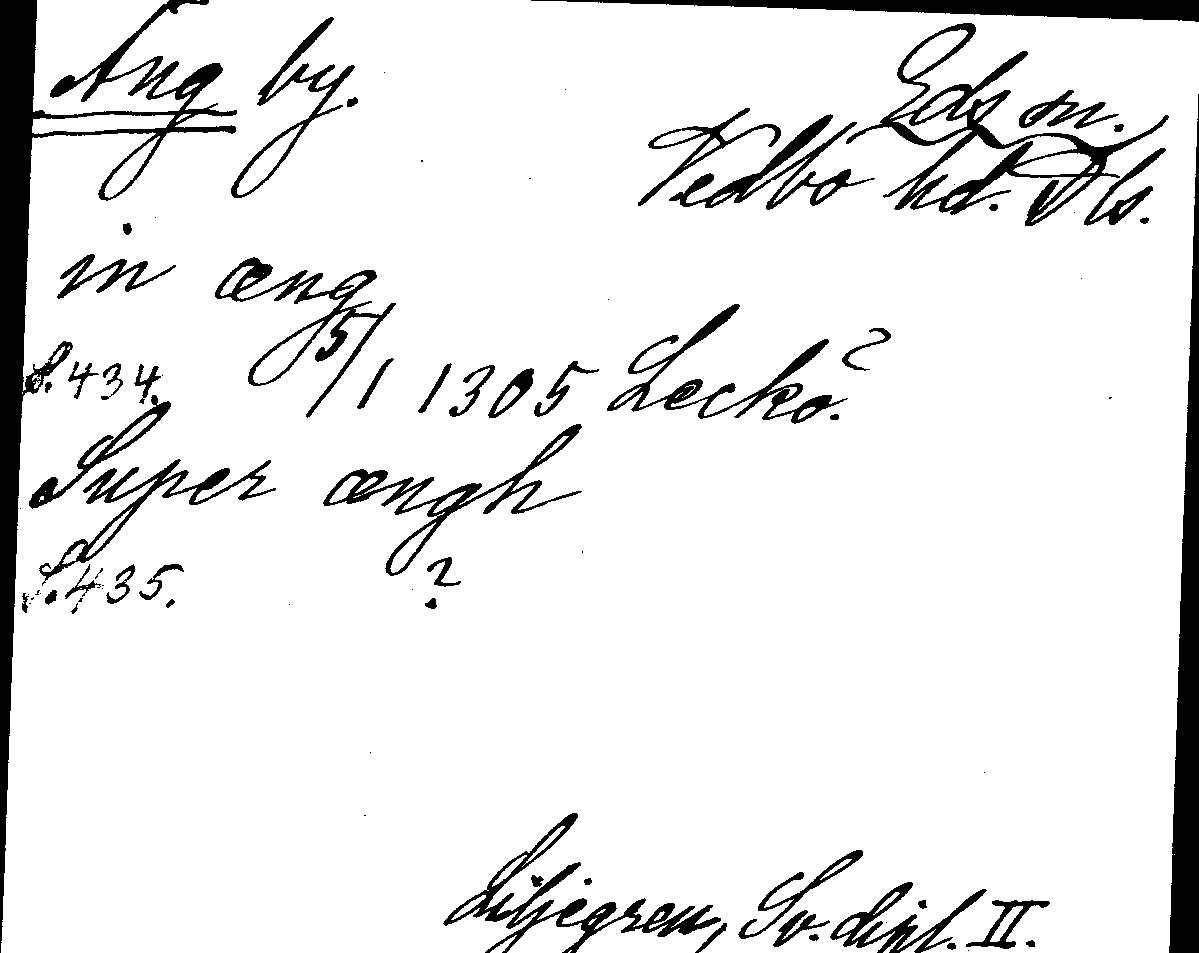 Äng by.
Eds sn.
Vedbo hd. Dls.
in æng
S. 434. 5/1 1305 Leckö?
Super ængh
S. 435. ?
Liljegren, Sv. dipl. II.